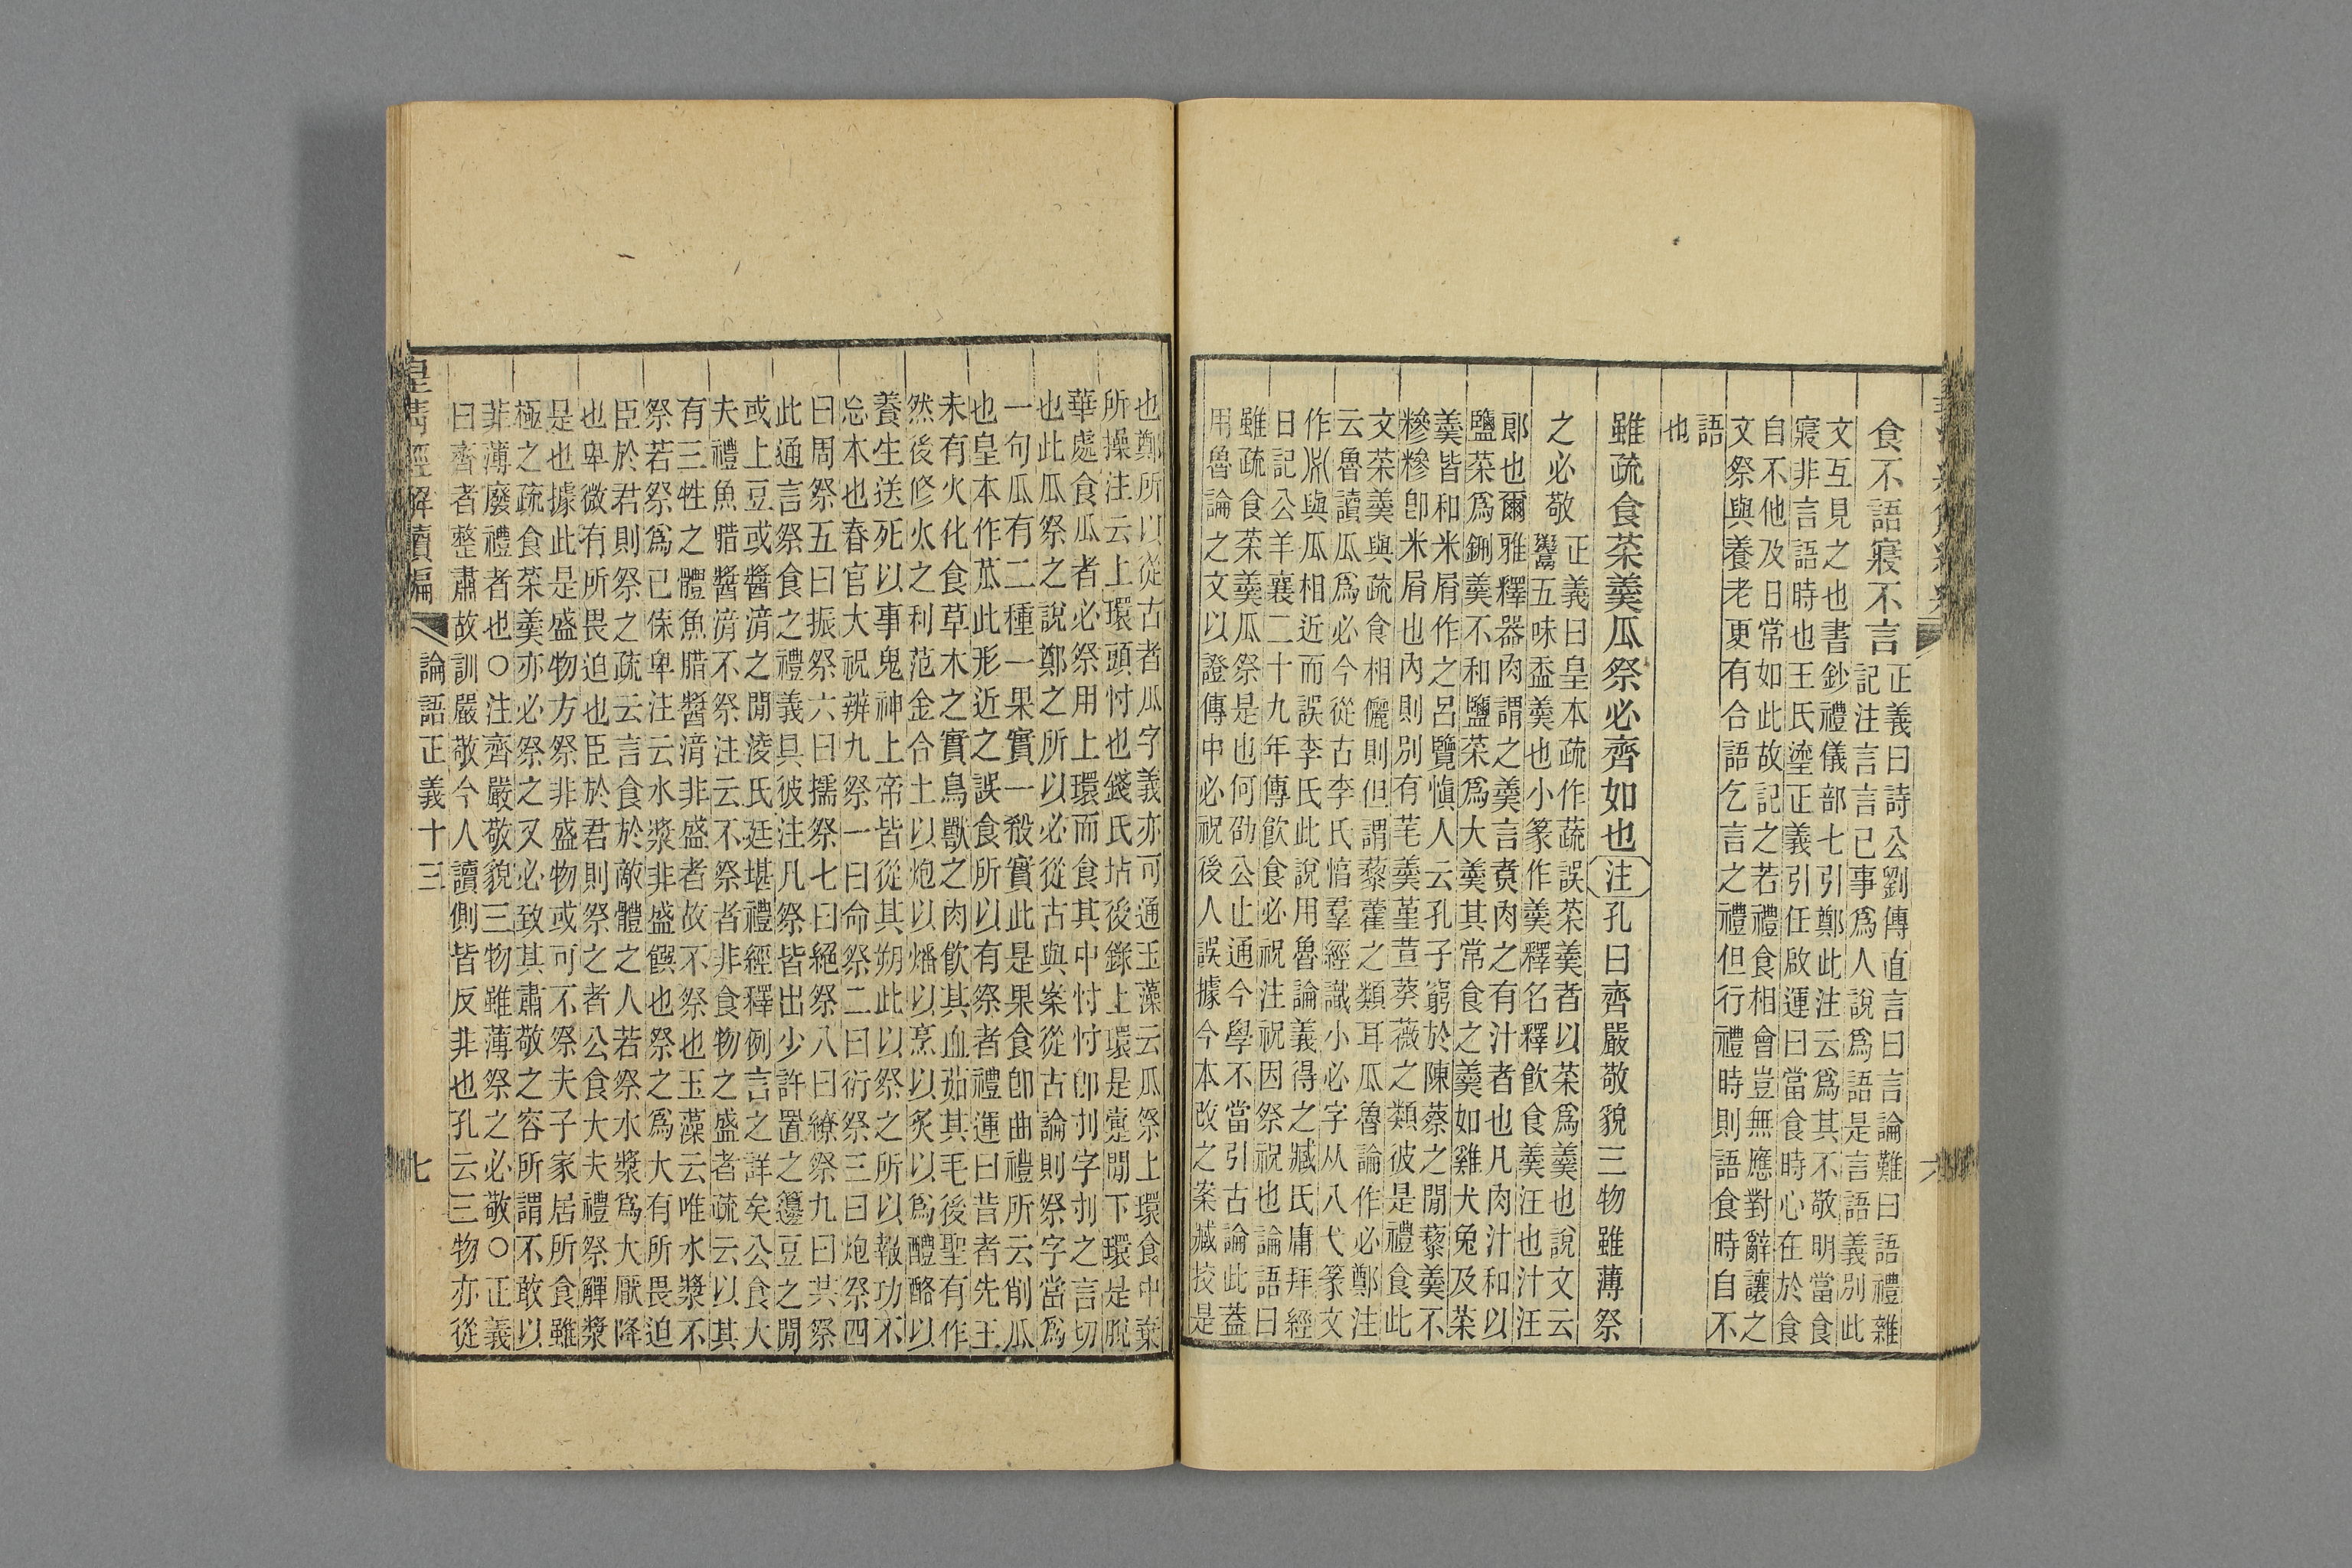 食不語寢不言
正義曰詩公劉傳直言曰言論難曰語禮雜
記注言言己事爲人說爲語是言語義別此
文互見之也書鈔禮儀部七引鄭此注云爲其不敬明當食
寢非言語時也王氏瀣正義引任啟運曰當食時心在於食
自不他及日常如此故記之若禮食相會豈無應對辭讓之
文祭與養老更有合語乞言之禮但行禮時則語食時自不
語
也
雖疏食菜羹瓜祭必齊如也注孔曰齊嚴敬貌三物雖薄祭
之必敬
正義曰皇本疏作蔬誤菜羹者以菜爲羹也說文云
鬻五味盉羹也小篆作羹釋名釋飲食羹汪也汁汪
郎也爾雅釋器肉謂之羹言煑肉之有汁者也凡肉汁和以
鹽菜爲鉶羹不和鹽菜爲大羹其常食之羹如雞犬兔及菜
羹皆和米屑作之呂覽愼人云孔子窮於陳蔡之閒藜羹不
糝糝卽米屑也內則別有芼羹堇荁葵薇之類彼是禮食此
文菜羹與疏食相儷則但謂藜藿之類耳瓜魯論作必鄭注
云魯讀瓜爲必今從古李氏惇羣經識小必字从八弋篆文
作𠈌與瓜相近而誤李氏此說用魯論義得之臧氏庸拜經
日記公羊襄二十九年傳飲食必祝注祝因祭祝也論語曰
雖疏食菜羹瓜祭是也何劭公止通今學不當引古論此蓋
用魯論之文以證傳中必祝後人誤據今本改之案臧挍是
也鄭所以從古者瓜字義亦可通玉藻云瓜祭上環食中棄
所操注云上環頭忖也錢氏坫後錄上環是疐閒下環是脫
華處食瓜者必祭用上環而食其中忖忖卽刌字刌之言切
也此瓜祭之說鄭之所以必從古與案從古論則祭字當爲
一句瓜有二種一果實一殽實此是果食卽曲禮所云削瓜
也皇本作苽此形近之誤食所以有祭者禮運曰昔者先王
未有火化食草木之實鳥獸之肉飲其血茹其毛後聖有作
然後修火之利范金合土以炮以燔以烹以炙以爲醴酪以
養生送死以事鬼神上帝皆從其朔此以祭之所以報功不
忘本也春官大祝辨九祭一曰命祭二曰衍祭三曰炮祭四
曰周祭五曰振祭六曰擩祭七曰絕祭八曰繚祭九曰共祭
此通言祭食之禮義具彼注凡祭皆出少許置之籩豆之閒
或上豆或醬湇之閒淩氏廷堪禮經釋例言之詳矣公食大
夫禮魚腊醬湇不祭注云不祭者非食物之盛者疏云以其
有三牲之體魚腊醬湇非盛者故不祭也玉藻云唯水漿不
祭若祭爲已㑞卑注云水漿非盛饌也祭之爲大有所畏迫
臣於君則祭之疏云言食於敵體之人若祭水漿爲大厭降
也卑微有所畏迫也臣於君則祭之者公食大夫禮祭觶漿
是也據此是盛物方祭非盛物或可不祭夫子家居所食雖
極之疏食菜羹亦必祭之又必致其肅敬之容所謂不敢以
菲薄廢禮者也○注齊嚴敬貌三物雖薄祭之必敬○正義
曰齊者整肅故訓嚴敬今人讀側皆反非也孔云三物亦從
皇淸經解續編
論語正義十三
七